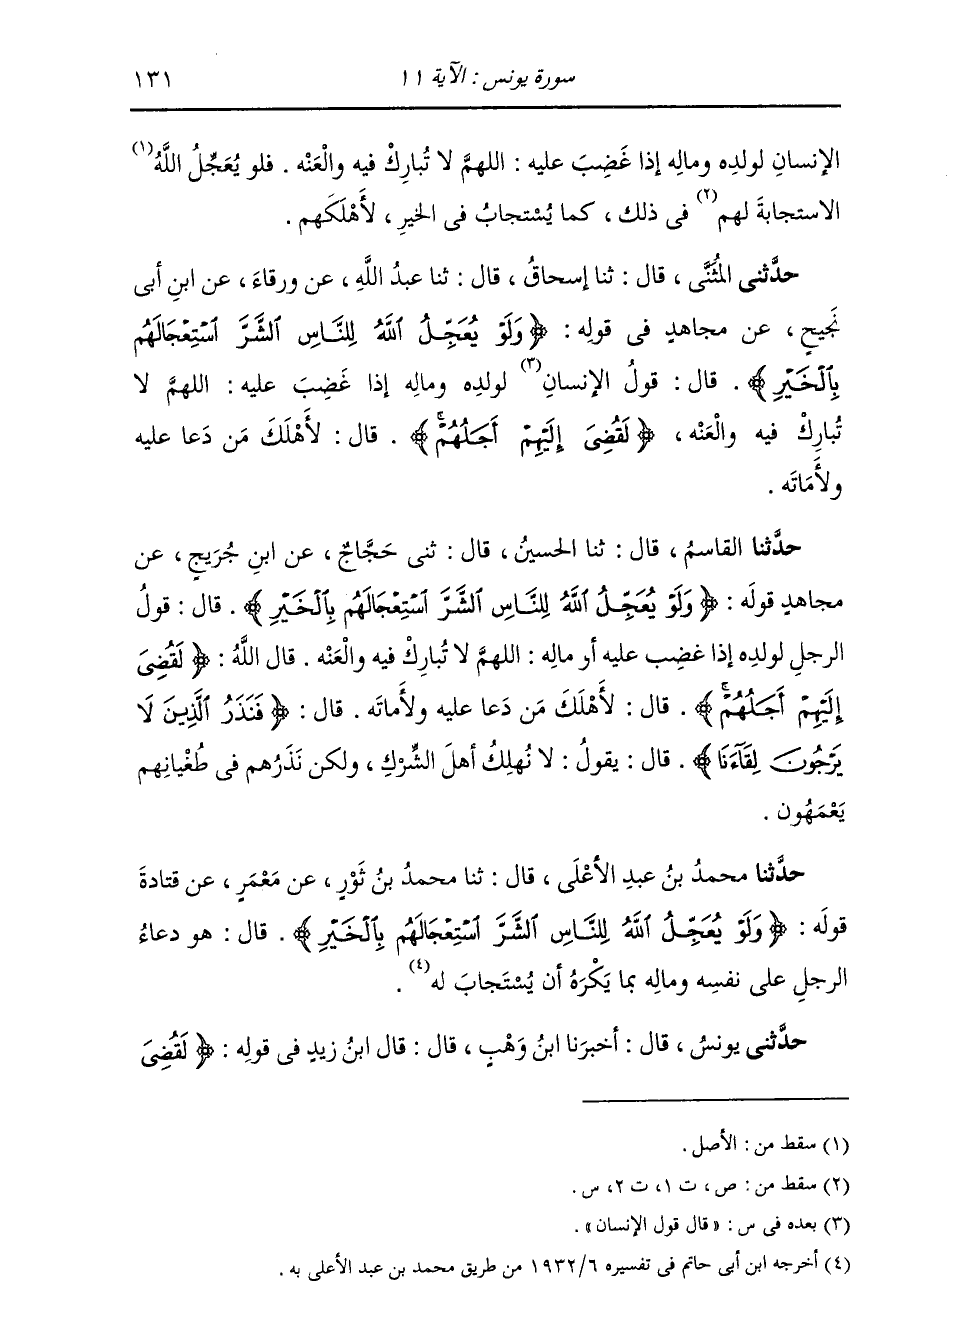 سورة يونس : الآية ١١ ١٣١
الإنسانِ لولدِه ومالِه إذا غَضِبَ عليه : اللهمَّ لا تُبارِكْ فيه والْعَنْه . فلو يُعَجِّلُ اللَّهُ(١)
الاستجابةَ لهم(٢) فى ذلك ، كما يُسْتجابُ فى الخيرِ ، لأَهْلَكَهم .
حدَّثنى المُثَنَّى ، قال : ثنا إسحاقُ ، قال : ثنا عبدُ اللَّهِ ، عن ورقاءَ ، عن ابنِ أبى
نَجيحٍ ، عن مجاهدٍ فى قولِه : ﴿ وَلَوْ يُعَجِّلُ ٱللَّهُ لِلنَّاسِ ٱلشَّرَّ ٱسْتِعْجَالَهُم
بِٱلْخَيْرِ ﴾ . قال : قولُ الإنسانِ(٣) لولدِه ومالِه إذا غَضِبَ عليه : اللهمَّ لا
تُبارِكْ فيه والْعَنْه ، ﴿ لَقُضِىَ إِلَيْهِمْ أَجَلُهُمْ ﴾ . قال : لأَهْلَكَ مَن دَعا عليه
ولأَمَاتَه .
حدَّثنا القاسمُ ، قال : ثنا الحسينُ ، قال : ثنى حَجَّاجٌ ، عن ابنِ جُرَيجٍ ، عن
مجاهدٍ قولَه : ﴿ وَلَوْ يُعَجِّلُ ٱللَّهُ لِلنَّاسِ ٱلشَّرَّ ٱسْتِعْجَالَهُم بِٱلْخَيْرِ ﴾ . قال : قولُ
الرجلِ لولدِه إذا غضِب عليه أر مالِه : اللهمَّ لا تُبارِكْ فيه والْعَنْه . قال اللَّهُ : ﴿ لَقُضِىَ
إِلَيْهِمْ أَجَلُهُمْ ﴾ . قال : لأَهْلَكَ مَن دَعا عليه ولأَماتَه . قال : ﴿ فَنَذَرُ ٱلَّذِينَ لَا
يَرْجُونَ لِقَآءَنَا ﴾ . قال : يقولُ : لا نُهلِكُ أهلَ الشِّرْكِ ، ولكن نَذَرُهم فى طُغْيانِهم
يَعْمَهُون .
حدَّثنا محمدُ بنُ عبدِ الأَعْلَى ، قال : ثنا محمدُ بنُ ثَوْرٍ ، عن مَعْمَرٍ ، عن قتادةَ
قولَه : ﴿ وَلَوْ يُعَجِّلُ ٱللَّهُ لِلنَّاسِ ٱلشَّرَّ ٱسْتِعْجَالَهُم بِٱلْخَيْرِ ﴾ . قال : هو دعاءُ
الرجلِ على نفسِه ومالِه بما يَكْرَهُ أن يُسْتَجابَ له(٤) .
حدَّثنى يونسُ ، قال : أخبرَنا ابنُ وَهْبٍ ، قال : قال ابنُ زيدٍ فى قولِه : ﴿ لَقُضِىَ
(١) سقط من : الأصل .
(٢) سقط من : ص ، ت ١ ، ت ٢ ، س .
(٣) بعده فى س : « قال قول الإنسان » .
(٤) أخرجه ابن أبى حاتم فى تفسيره ١٩٣٢/٦ من طريق محمد بن عبد الأعلى به .